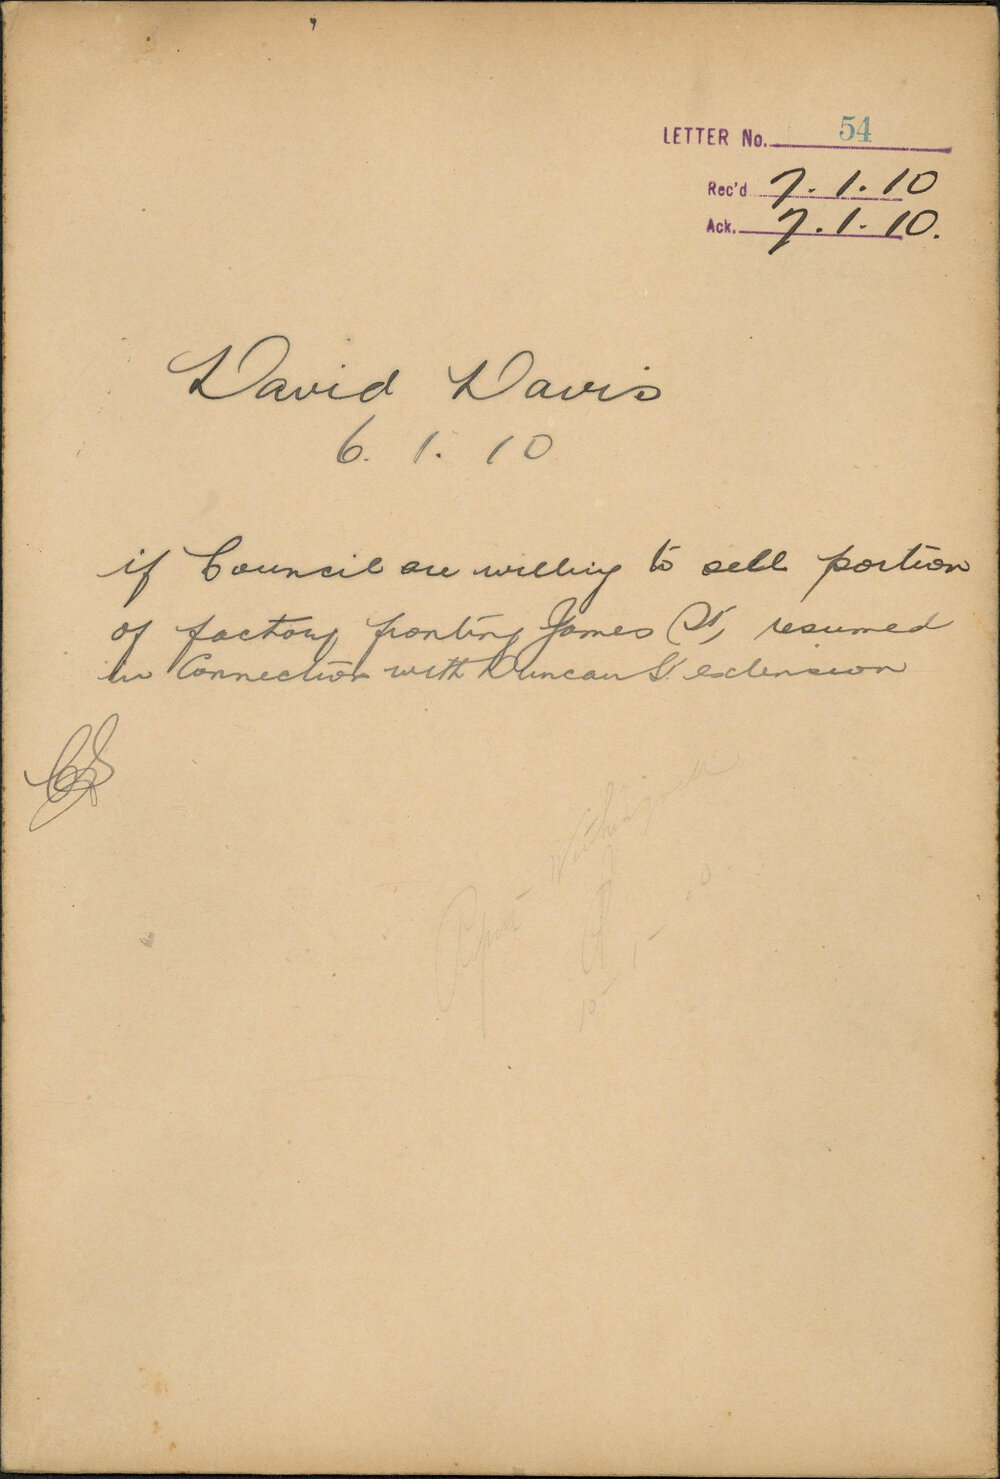 LETTER No. 54
Rec'd 7.1.10
Ack. 7.1.10.
David Davis
6.1.10
if Council are willing to sell portion
of factory fronting James St, resumed
in Connection with Duncan St extension
Report
10 1 10